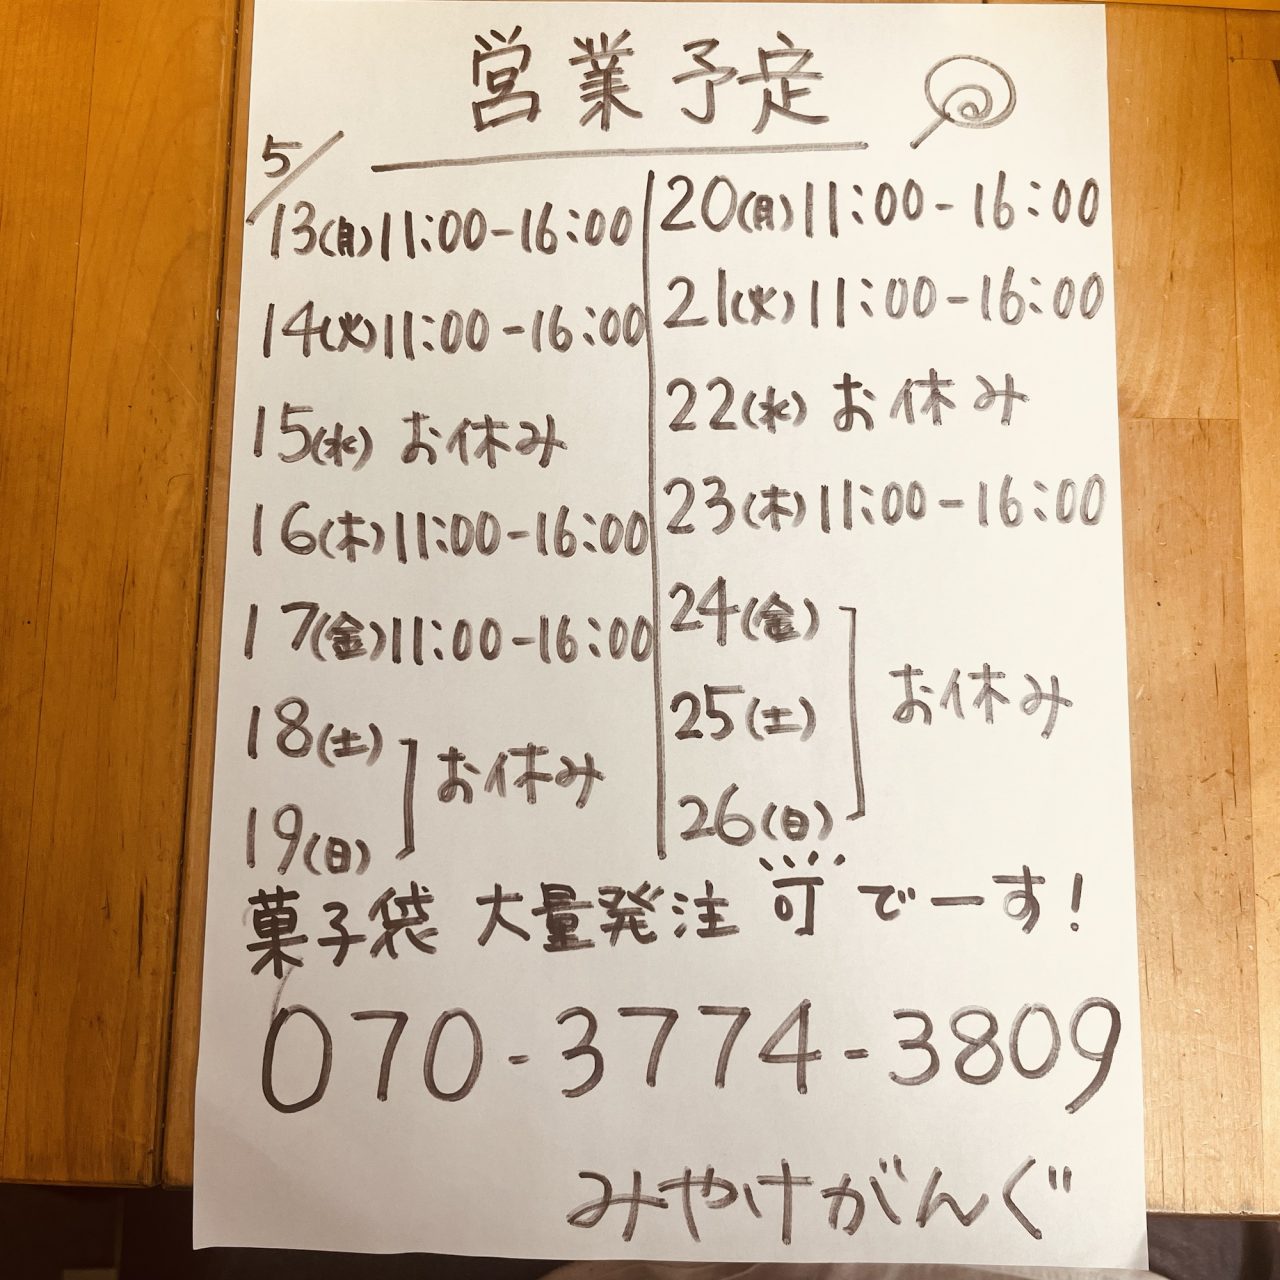 営業予定
5/
13(月)11:00-16:00
14(火)11:00-16:00
15(水) お休み
16(木)11:00-16:00
17(金)11:00-16:00
18(土)
19(日)
お休み
20(月)11:00-16:00
21(火)11:00-16:00
22(水) お休み
23(木)11:00-16:00
24(金)
25(土)
26(日)
お休み
菓子袋 大量発注 可 でーす!
070-3774-3809
みやけがんぐ